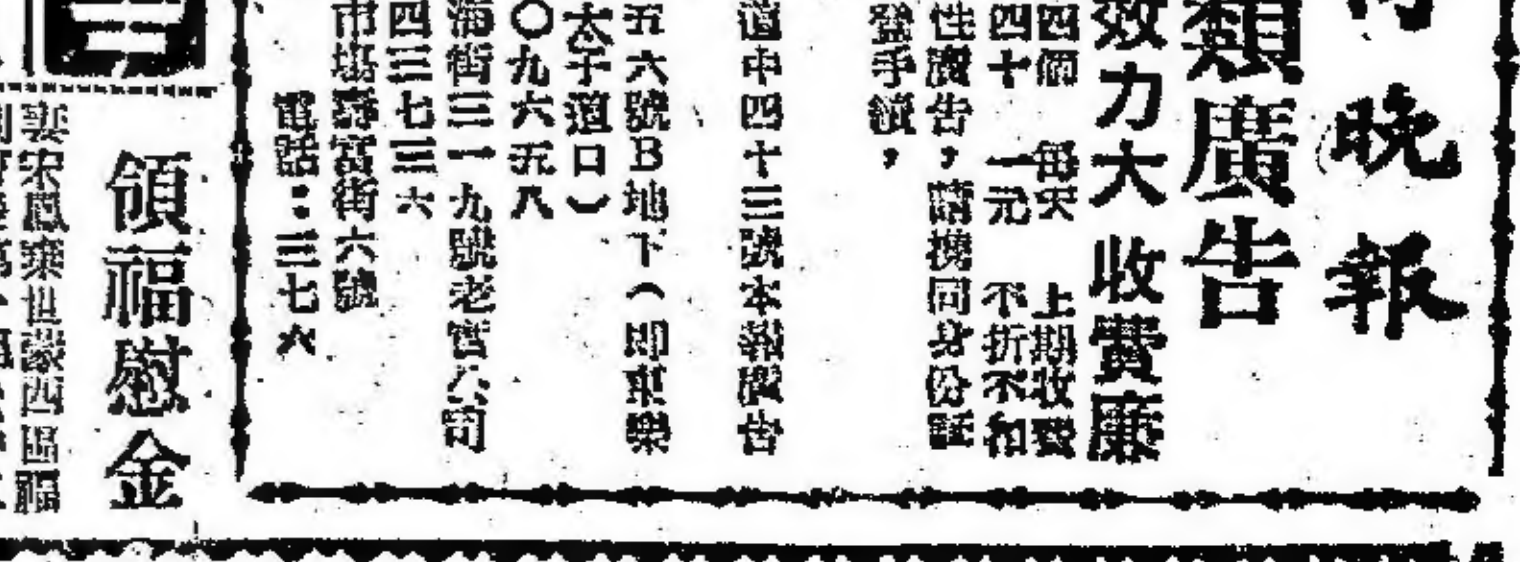 晚報
類廣告
效力大 收費廉
四個 每天 上期收費
四十 一元 不折不扣
性廣告，請携同身份証
登手續，
道中四十三號本報廣告
五六號B地下（即東樂
太子道口）
〇九六五八
海街三一九號老實公司
四三七三六
市場壽富街六號
電話：三七六
領福慰金
妻宋鳳業世蒙西區福